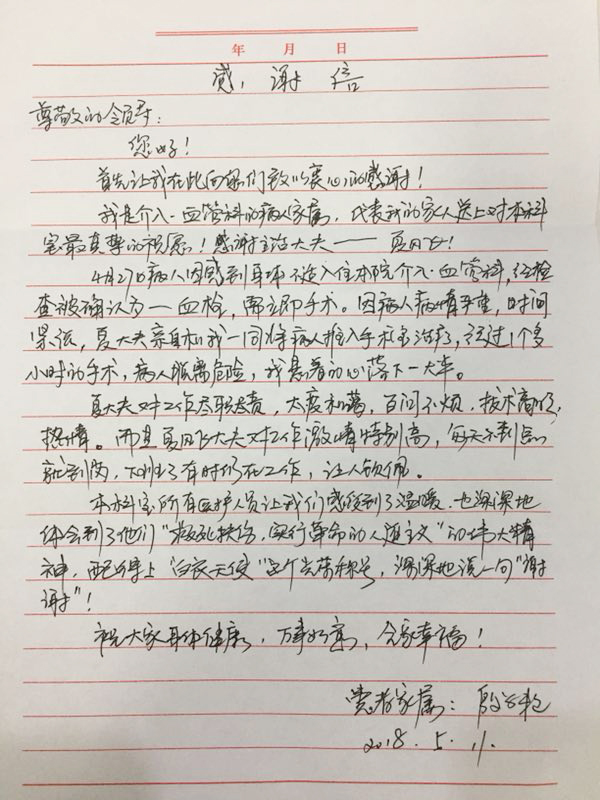 年 月 日
感谢信
尊敬的领导：
您好！
首先让我在此向你们致以衷心的感谢！
我是介入·血管科的病人家属，代表我的家人送上对本科
室最真挚的祝愿！感谢主治大夫——夏同飞！
4月27日病人因感到身体不适入住本院介入·血管科，经检
查被确认为——血栓，需立即手术。因病人病情严重，时间
紧迫，夏大夫亲自和我一同将病人推入手术室治疗，经过1个多
小时的手术，病人脱离危险，我悬着的心落下一大半。
夏大夫对工作尽职尽责，太度和蔼，百问不烦，技术高明，
热情。而且夏同飞大夫对工作激情特别高，每天不到点
就到岗，下班了有时仍在工作，让人钦佩。
本科室所有医护人员让我们感受到了温暖，也深深地
体会到了他们"救死扶伤，实行革命的人道主义"的伟大精
神，配得上"白衣天使"这个光荣称号，深深地说一句"谢
谢"！
祝大家身体健康，万事如意，合家幸福！
患者家属：殷
2018.5.11.